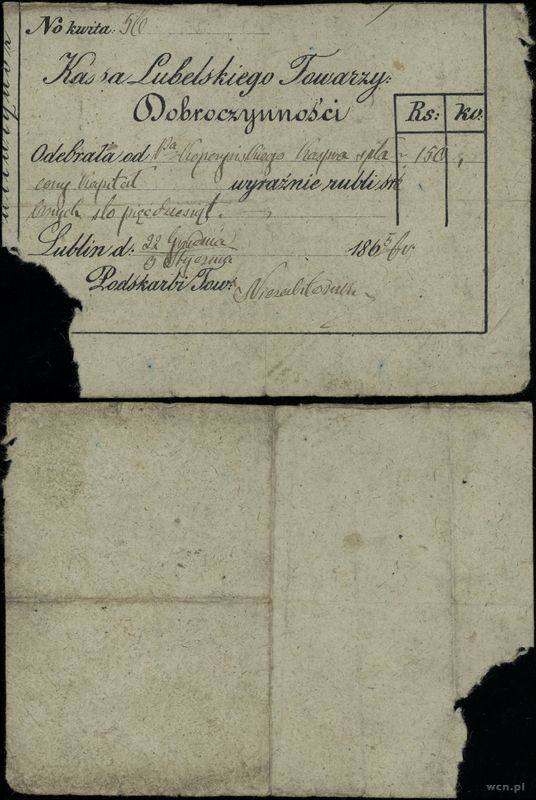 No kwita: 50
Kassa Lubelskiego Towarzy:
Dobroczynności
Rs: ko.
Odebrała od Pa 150
cony Kapitał wyraźnie rubli sre
brnych sto pięćdziesiąt.
Lublin d. 22 Grudnia 1865/6 r.
3 Stycznia
Podskarbi Tow:
wcn.pl